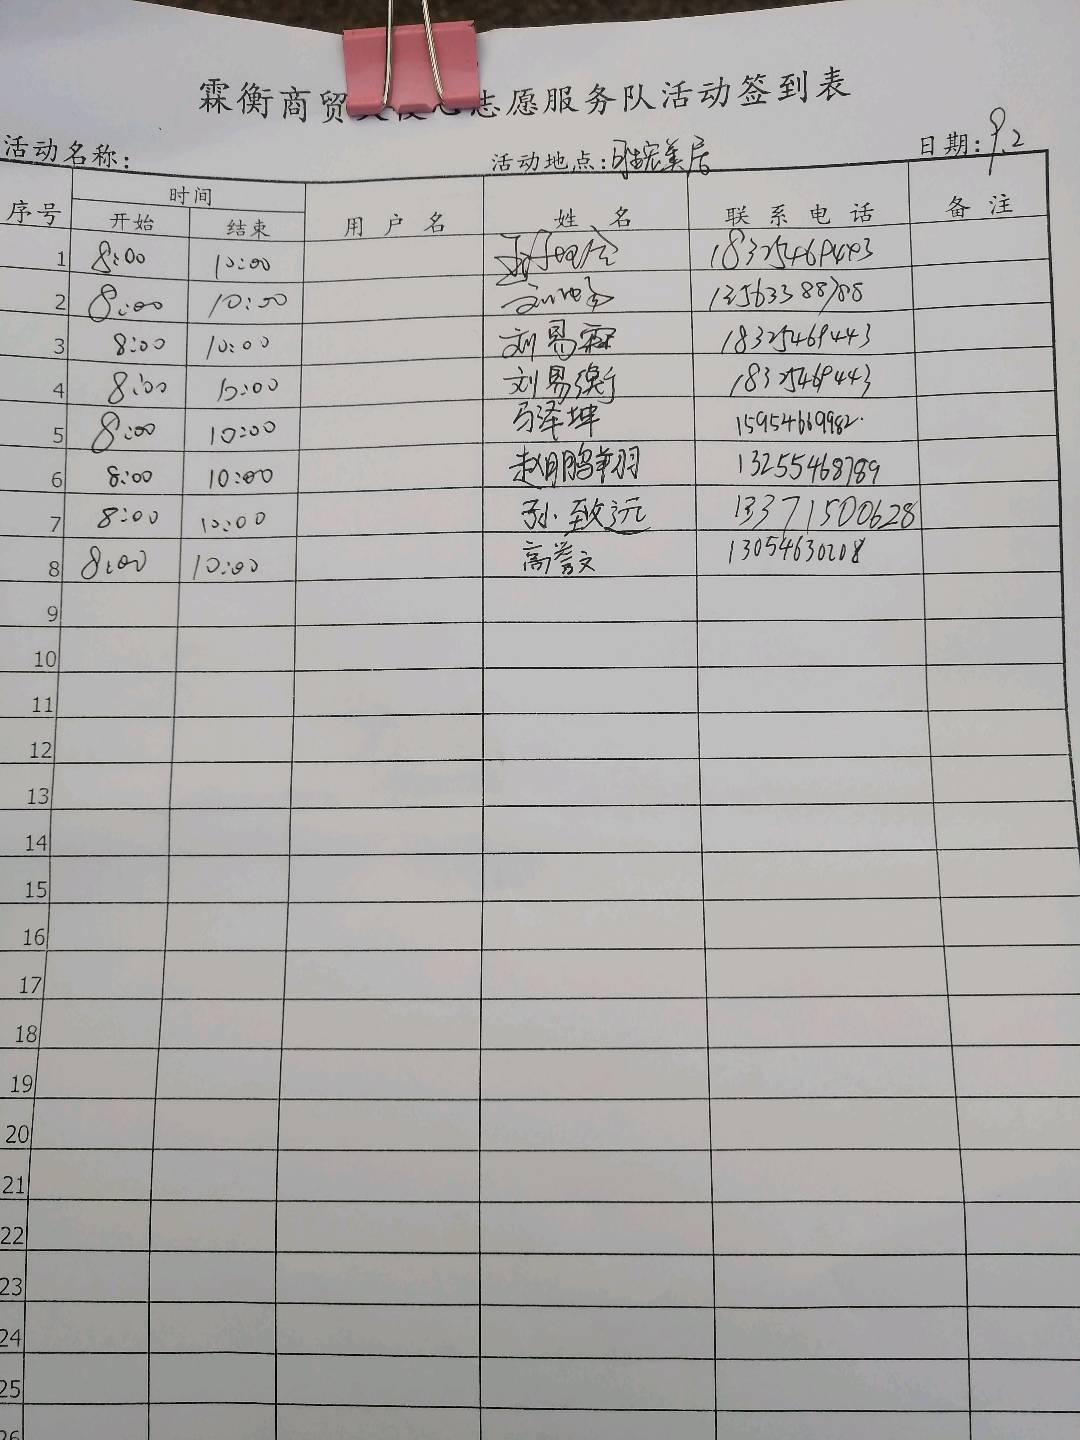 霖衡商贸 志愿服务队活动签到表
活动名称: 活动地点:雅苑美居 日期:9.2
序号 时间 用户名 姓名 联系电话 备注
开始 结束
1 8:00 10:00 18325469443
2 8:00 10:00 13563388788
3 8:00 10:00 刘易霖 18325469443
4 8:00 10:00 刘易衡 18325469443
5 8:00 10:00 马泽坤 15954669982
6 8:00 10:00 赵鹏翔羽 13255468789
7 8:00 10:00 孙致远 13371500628
8 8:00 10:00 高誉文 13054630208
9
10
11
12
13
14
15
16
17
18
19
20
21
22
23
24
25
26